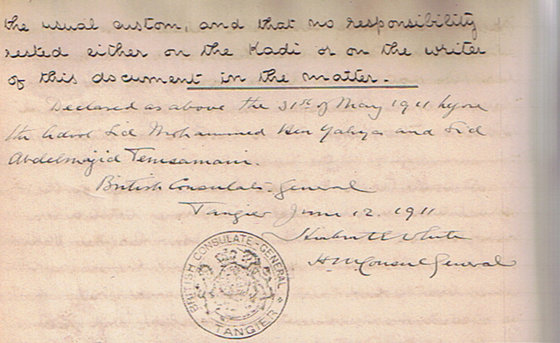 the usual custom, and that no responsibility
rested either on the Kadi or on the writer
of this document in the matter.
Declared as above the 31st of May 1911 before
the Adool Sid Mohammed Ben Yahya and Sid
Abdelmajid Temsamani.
British Consulate-General
Tangier June 12. 1911
Herbert E White
H.M. Consul General
BRITISH CONSULATE-GENERAL
TANGIER